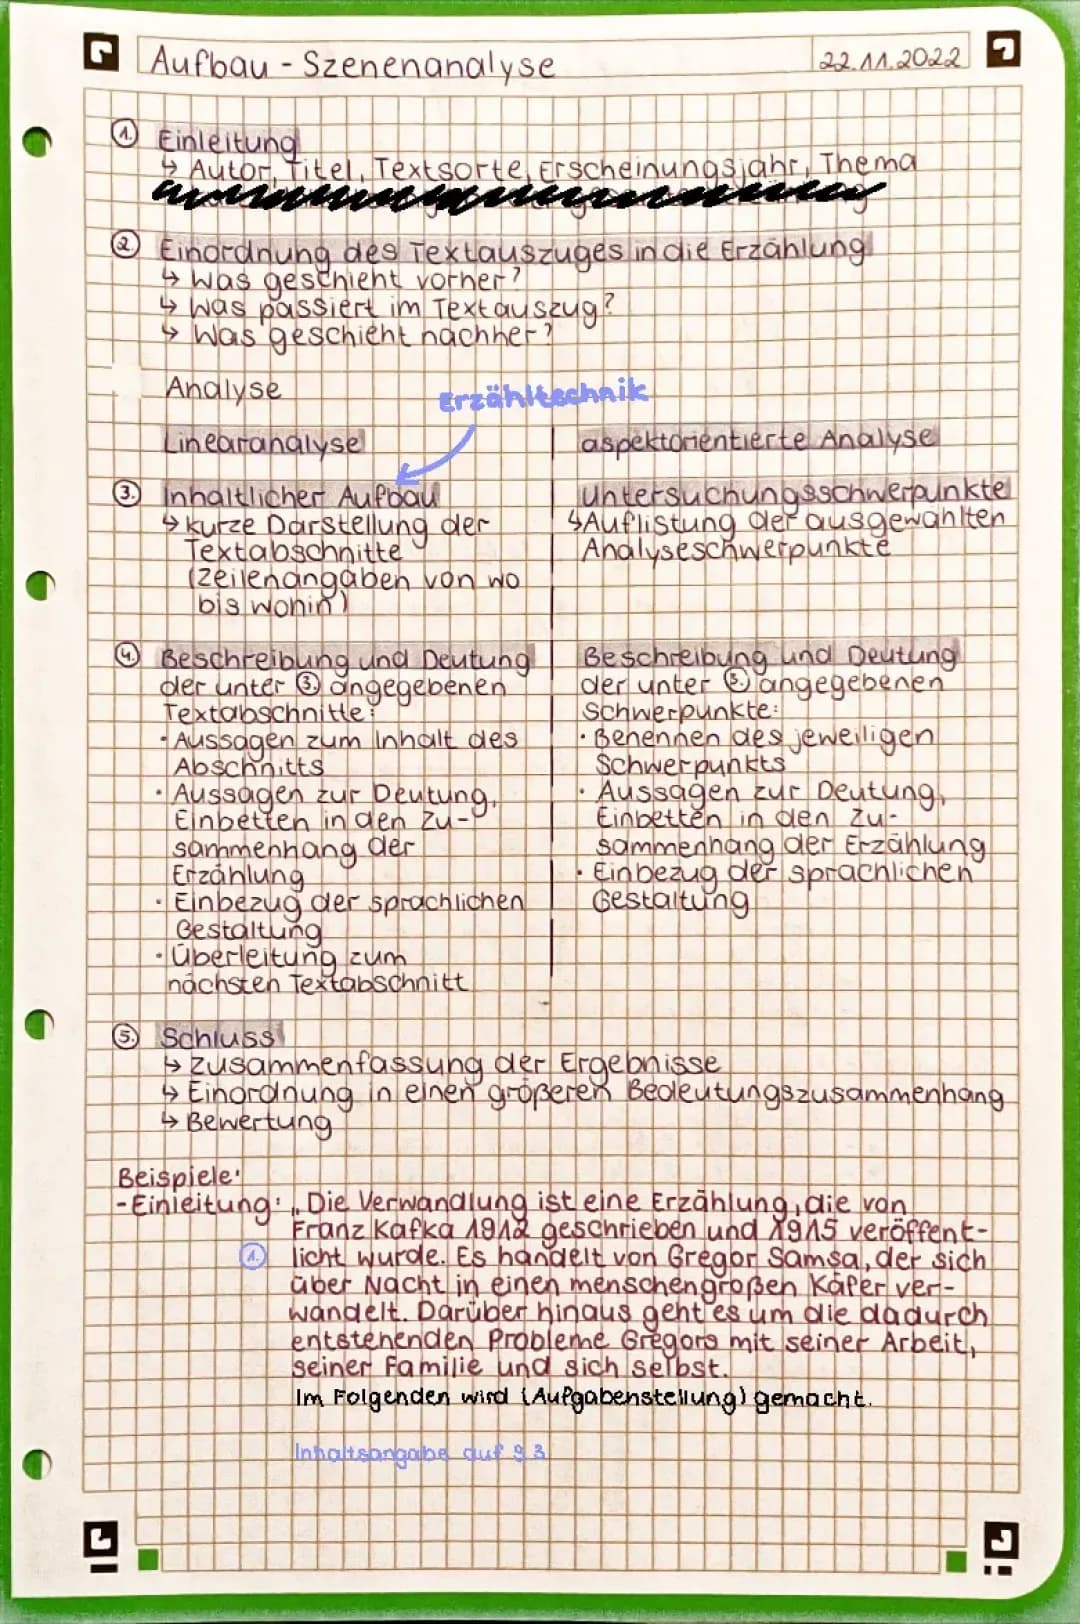 Aufbau - Szenenanalyse
22.11.2022
1. Einleitung
↳ Autor, Titel, Textsorte, Erscheinungsjahr, Thema
2. Einordnung des Textauszuges in die Erzählung
↳ Was geschieht vorher?
↳ Was passiert im Textauszug?
↳ Was geschieht nachher?
Analyse
Erzähltechnik
Linearanalyse
3. Inhaltlicher Aufbau
↳ kurze Darstellung der
Textabschnitte
(Zeilenangaben von wo
bis wohin)
4. Beschreibung und Deutung
der unter ③ angegebenen
Textabschnitte:
· Aussagen zum Inhalt des
Abschnitts
· Aussagen zur Deutung,
Einbetten in den Zu-
sammenhang der
Erzählung
· Einbezug der sprachlichen
Gestaltung
· Überleitung zum
nächsten Textabschnitt
aspektorientierte Analyse
Untersuchungsschwerpunkte
↳ Auflistung der ausgewählten
Analyseschwerpunkte
Beschreibung und Deutung
der unter ③ angegebenen
Schwerpunkte:
· Benennen des jeweiligen
Schwerpunkts
· Aussagen zur Deutung,
Einbetten in den Zu-
sammenhang der Erzählung
· Einbezug der sprachlichen
Gestaltung
5. Schluss
↳ Zusammenfassung der Ergebnisse
↳ Einordnung in einen größeren Bedeutungszusammenhang
↳ Bewertung
Beispiele:
- Einleitung: „Die Verwandlung ist eine Erzählung, die von
Franz Kafka 1912 geschrieben und 1915 veröffent-
1. licht wurde. Es handelt von Gregor Samsa, der sich
über Nacht in einen menschengroßen Käfer ver-
wandelt. Darüber hinaus geht es um die dadurch
entstehenden Probleme Gregors mit seiner Arbeit,
seiner Familie und sich selbst.
Im Folgenden wird (Aufgabenstellung) gemacht.
Inhaltsangabe auf S 3